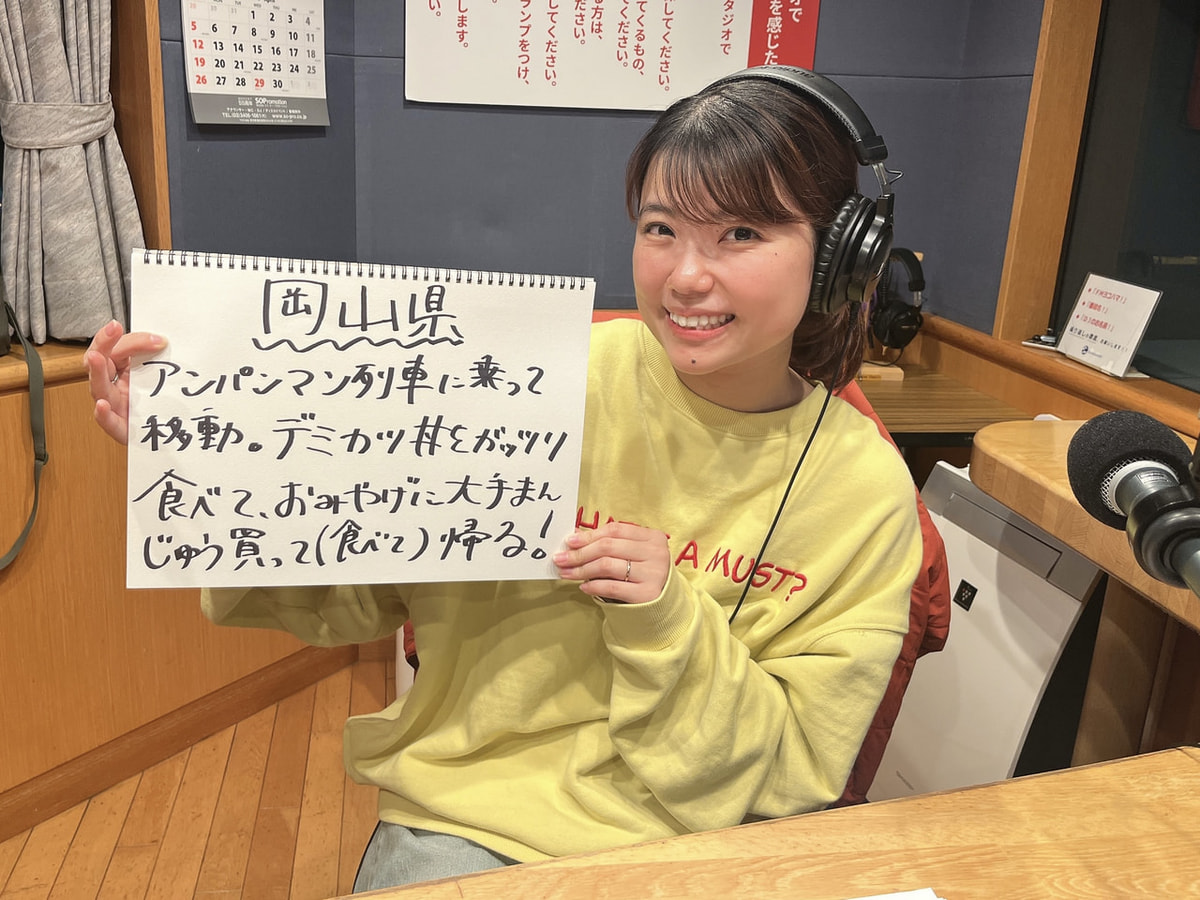 岡山県
アンパンマン列車に乗って
移動。デミカツ丼をガッツリ
食べて、おみやげに大手まん
じゅう買って(食べて)帰る!
A MUST?
1 2 3 4
5 6 7 8 9 10 11
12 13 14 15 16 17 18
19 20 21 22 23 24 25
26 27 28 29 30
SOPromotion
オで
を感じた
タジオで
してください。
てくるもの、
てください。
る方は、
ださい。
してください。
ランプをつけ、
します。
い。